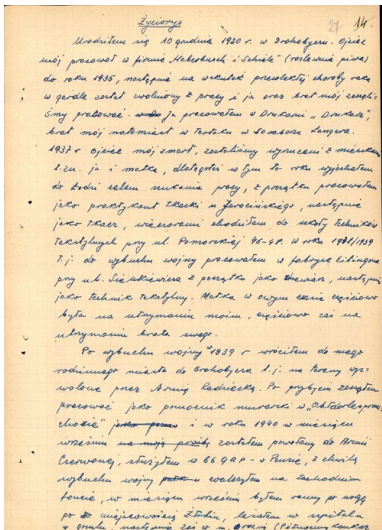 Życiorys
21 14.
Urodziłem się 10 grudnia 1920 r. w Drohobyczu. Ojciec
mój pracował w firmie „Haberbusch i Schiele" (rozlewnia piwa)
do roku 1935, następnie na skutek przewlekłej choroby raka
w gardle został zwolniony z pracy i ja oraz brat mój zaczęli-
śmy pracować. Ja pracowałem w Drukarni „Drukarz",
brat mój natomiast w Tartaku
1937 r ojciec mój zmarł, zostaliśmy wyrzuceni z mieszka-
t.zn. ja i matka, dlatego też w tym to roku wyjechałem
do Łodzi celem szukania pracy, z początku pracowałem
jako praktykant tkacki u Jarocińskiego, następnie
jako tkacz, wieczorami chodziłem do szkoły Techników
Tekstylnych przy ul. Pomorskiej 46-48. W roku 1938/1939
t.j. do wybuchu wojny pracowałem w fabryce Eitingona
przy ul. Sienkiewicza z początku jako, następnie
jako technik tekstylny. Matka w owym czasie częściowo
była na utrzymaniu moim, częściowo zaś na
utrzymaniu brata mego.
Po wybuchu wojny 1939 r wróciłem do mego
rodzinnego miasta do Drohobycza t.j. na tereny wyz-
wolone przez Armię Radziecką. Po przybyciu zacząłem
pracować jako pomocnik murarski w
i w roku 1940 w miesiącu
wrześniu na moją prośbę zostałem powołany do Armii
Czerwonej, służyłem w 66 GAP - w Penzie, z chwilą
wybuchu wojny walczyłem na zachodnim
froncie, w miesiącu wrześniu byłem ranny w nogę
po miejscowością, leżałem w szpitalu
następnie zaś w m.